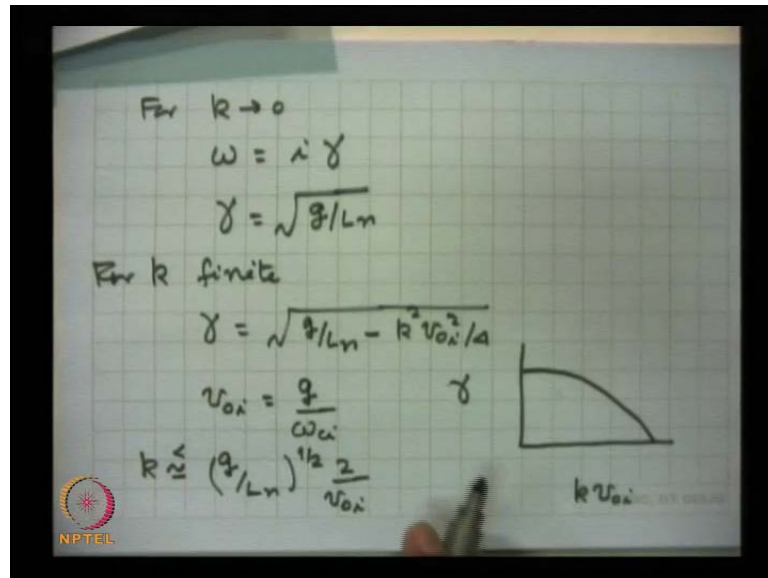 For k → 0
ω = i γ
γ = √g/Ln
For k finite
γ = √g/Ln - k² v₀ᵢ²/4
v₀ᵢ = g/ω_ci
γ
k ≲ (g/Ln)^1/2 2/v₀ᵢ
k v₀ᵢ
NPTEL